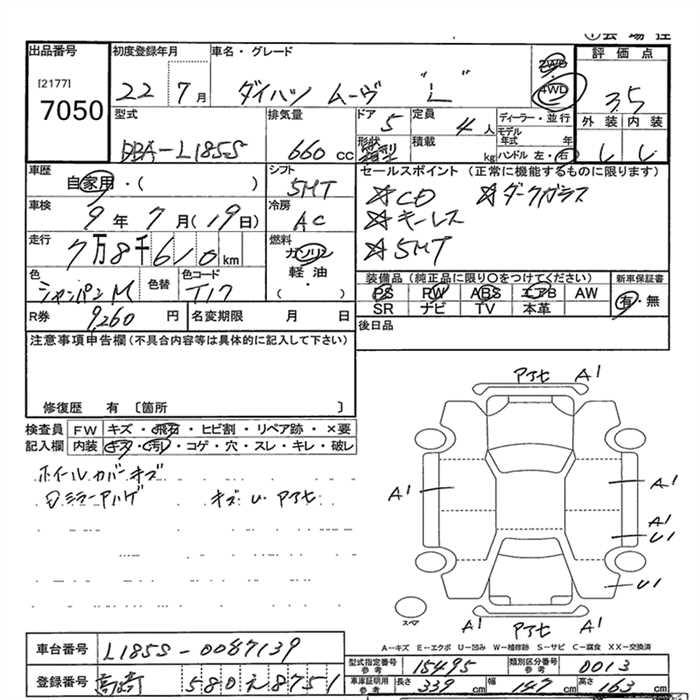 出品番号
[2177]
7050
初度登録年月
22 7月
車名・グレード
ダイハツ ムーヴ "L"
2WD
4WD
評価点
3.5
外装 内装
型式
DBA-L185S
排気量
660 cc
ドア
5
形状
箱型
定員
4人
積載
kg
ディーラー・並行
モデル年式 年
ハンドル 左・右
車歴
自家用・( )
シフト
5MT
セールスポイント (正常に機能するものに限ります)
☆CD ☆ダークガラス
☆キーレス
☆5MT
車検
9年 7月(19日)
冷房
AC
走行
7万8千610km
燃料
ガソリン
軽油・
( )
色
シャンパンM
色替
色コード
T17
装備品 (純正品に限り〇をつけてください)
PS PW ABS エアB AW
SR ナビ TV 本革
新車保証書
有・無
R券
9,260円
名変期限 月 日
後日品
注意事項申告欄(不具合内容等は具体的に記入して下さい)
修復歴 有 〔箇所 〕
検査員記入欄
FW キズ・飛石・ヒビ割・リペア跡・×要
内装 キズ・汚れ・コゲ・穴・スレ・キレ・破レ
ホイールカバーキズ
キズ U アアセ
アアセ A1
A1
A1
A1
U1
U1
スペア
A1 アアセ A1
A-キズ E-エクボ U-凹み W-補修跡 S-サビ C-腐食 XX-交換済
車台番号
L185S-0087139
型式指定番号 参考
15495
類別区分番号 参考
0013
登録番号
高崎 580 え 8751
車庫証明用 参考
長さ 339cm
幅 147cm
高さ 163cm